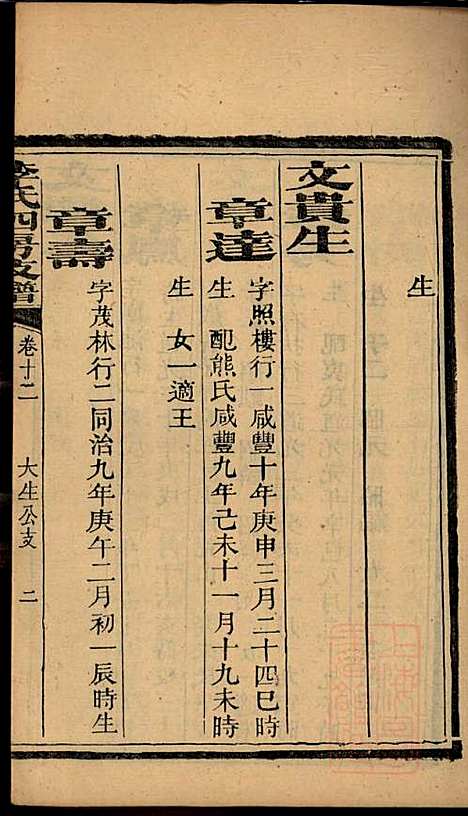 生
文貴生
章達
字照樓行一咸豐十年庚申三月二十四巳時
生 配熊氏咸豐九年己未十一月十九未時
生 女一適王
章壽
字茂林行二同治九年庚午二月初一辰時生
氏四房支譜 卷十二 大生公支 二